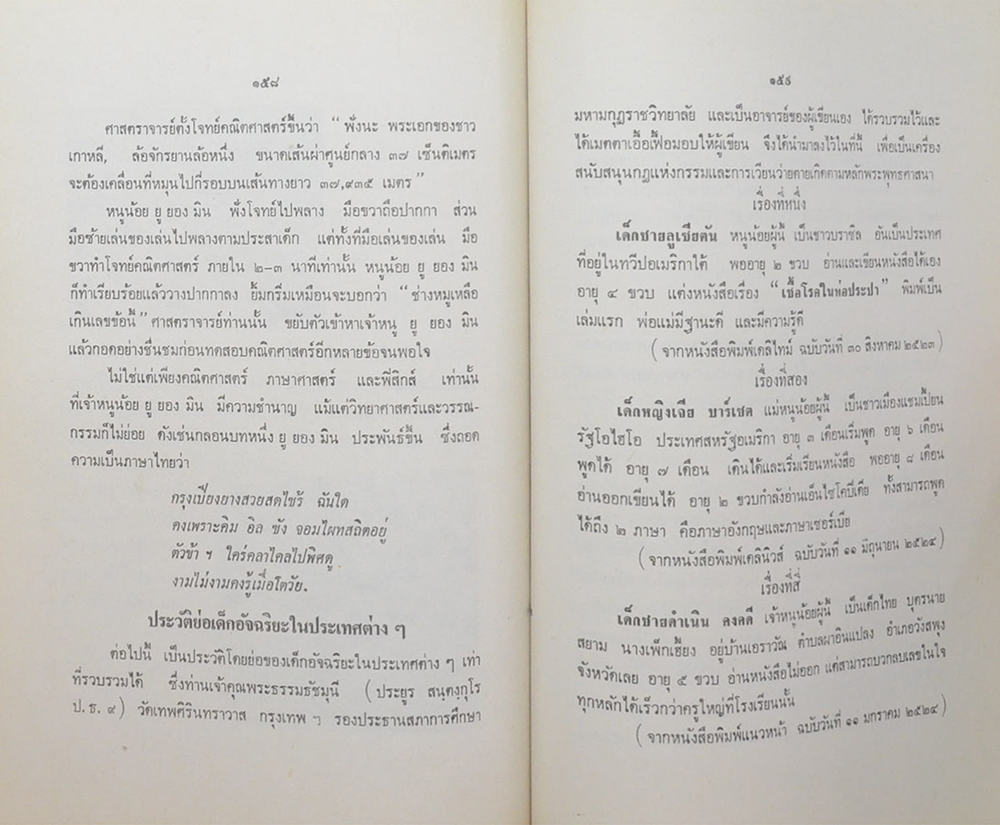 ๑๕๘
ศาสตราจารย์ตั้งโจทย์คณิตศาสตร์ขึ้นว่า “ ฟังนะ พระเอกของชาว
เกาหลี, ล้อจักรยานล้อหนึ่ง ขนาดเส้นผ่าศูนย์กลาง ๓๗ เซ็นติเมตร
จะต้องเคลื่อนที่หมุนไปกี่รอบบนเส้นทางยาว ๓๗,๙๓๕ เมตร ”
หนูน้อย ยู ยอง มิน ฟังโจทย์ไปพลาง มือขวาถือปากกา ส่วน
มือซ้ายเล่นของเล่นไปพลางตามประสาเด็ก แต่ทั้งที่มือเล่นของเล่น มือ
ขวาทำโจทย์คณิตศาสตร์ ภายใน ๒-๓ นาทีเท่านั้น หนูน้อย ยู ยอง มิน
ก็ทำเรียบร้อยแล้ววางปากกาลง ยิ้มกริ่มเหมือนจะบอกว่า “ ช่างหมูเหลือ
เกินเลขข้อนี้ ” ศาสตราจารย์ท่านนั้น ขยับตัวเข้าหาเจ้าหนู ยู ยอง มิน
แล้วกอดอย่างชื่นชมก่อนทดสอบคณิตศาสตร์อีกหลายข้อจนพอใจ
ไม่ใช่แต่เพียงคณิตศาสตร์ ภาษาศาสตร์ และฟิสิกส์ เท่านั้น
ที่เจ้าหนูน้อย ยู ยอง มิน มีความชำนาญ แม้แต่วิทยาศาสตร์และวรรณ-
กรรมก็ไม่ย่อย ดังเช่นกลอนบทหนึ่ง ยู ยอง มิน ประพันธ์ขึ้น ซึ่งถอด
ความเป็นภาษาไทยว่า
กรุงเปียงยางสวยสดไซร้ ฉันใด
คงเพราะคิม อิล ซัง จอมไผทสถิตอยู่
ตัวข้า ฯ ใคร่คลาไคลไปพิศดู
งามไม่งามคงรู้เมื่อโตวัย.
ประวัติย่อเด็กอัจฉริยะในประเทศต่าง ๆ
ต่อไปนี้ เป็นประวัติโดยย่อของเด็กอัจฉริยะในประเทศต่าง ๆ เท่า
ที่รวบรวมได้ ซึ่งท่านเจ้าคุณพระธรรมธัชมุนี ( ประยูร สนฺตงฺกุโร
ป. ธ. ๙ ) วัดเทพศิรินทราวาส กรุงเทพ ฯ รองประธานสภาการศึกษา
๑๕๙
มหามกุฎราชวิทยาลัย และเป็นอาจารย์ของผู้เขียนเอง ได้รวบรวมไว้และ
ได้เมตตาเอื้อเฟื้อมอบให้ผู้เขียน จึงได้นำมาลงไว้ในที่นี้ เพื่อเป็นเครื่อง
สนับสนุนกฎแห่งกรรมและการเวียนว่ายตายเกิดตามหลักพระพุทธศาสนา
เรื่องที่หนึ่ง
เด็กชายลูเซียตัน หนูน้อยผู้นี้ เป็นชาวบราซิล อันเป็นประเทศ
ที่อยู่ในทวีปอเมริกาใต้ พออายุ ๒ ขวบ อ่านและเขียนหนังสือได้เอง
อายุ ๔ ขวบ แต่งหนังสือเรื่อง “เชื้อโรคในท่อประปา” พิมพ์เป็น
เล่มแรก พ่อแม่มีฐานะดี และมีความรู้ดี
( จากหนังสือพิมพ์เดลิไทม์ ฉบับวันที่ ๓๐ สิงหาคม ๒๕๒๓ )
เรื่องที่สอง
เด็กหญิงเจีย บาร์เซต แม่หนูน้อยผู้นี้ เป็นชาวเมืองแชมเปี้ยน
รัฐโอไฮโอ ประเทศสหรัฐอเมริกา อายุ ๓ เดือนเริ่มพูด อายุ ๖ เดือน
พูดได้ อายุ ๗ เดือน เดินได้และเริ่มเรียนหนังสือ พออายุ ๘ เดือน
อ่านออกเขียนได้ อายุ ๒ ขวบกำลังอ่านเอ็นไซโคปีเดีย ทั้งสามารถพูด
ได้ถึง ๒ ภาษา คือภาษาอังกฤษและภาษาเซอร์เบีย
( จากหนังสือพิมพ์เดลินิวส์ ฉบับวันที่ ๑๑ มิถุนายน ๒๕๒๔ )
เรื่องที่สี่
เด็กชายดำเนิน คงคดี เจ้าหนูน้อยผู้นี้ เป็นเด็กไทย บุตรนาย
สยาม นางเพ็กเฮี้ยง อยู่บ้านเอราวัณ ตำบลผาอินแปลง อำเภอวังสพุง
จังหวัดเลย อายุ ๕ ขวบ อ่านหนังสือไม่ออก แต่สามารถบวกลบเลขในใจ
ทุกหลักได้เร็วกว่าครูใหญ่ที่โรงเรียนนั้น
( จากหนังสือพิมพ์แนวหน้า ฉบับวันที่ ๑๑ มกราคม ๒๕๒๔ )